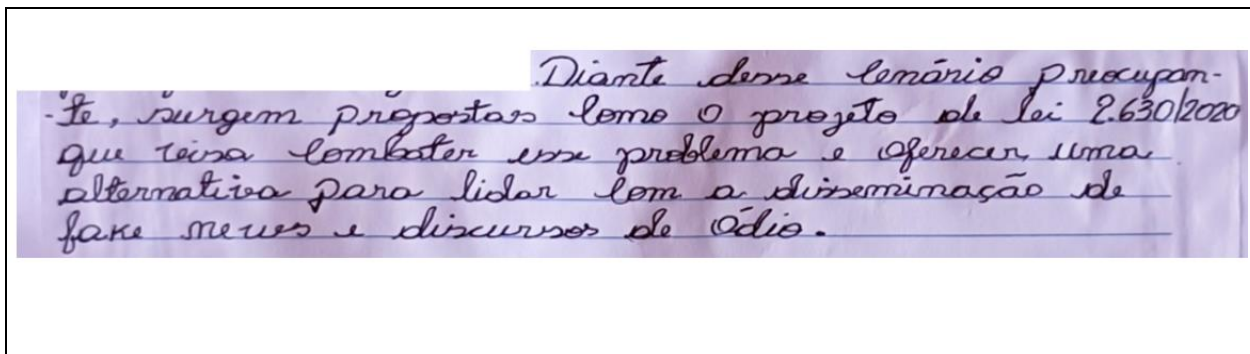 Diante desse cenário preocupan-
-te, surgem propostas como o projeto de lei 2.630/2020
que visa combater esse problema e oferecer uma
alternativa para lidar com a disseminação de
fake news e discursos de ódio.